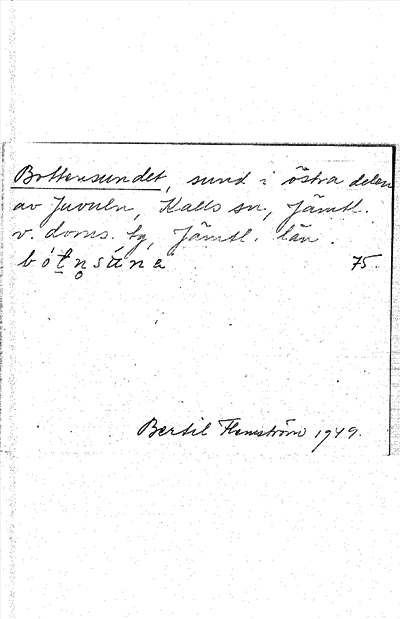 Bottensundet, sund i östra delen
av Juvuln, Kalls sn, Jämtl.
v. doms. tg, Jämtl. län.
bótn̥súna 75.
Bertil Flemström 1949.